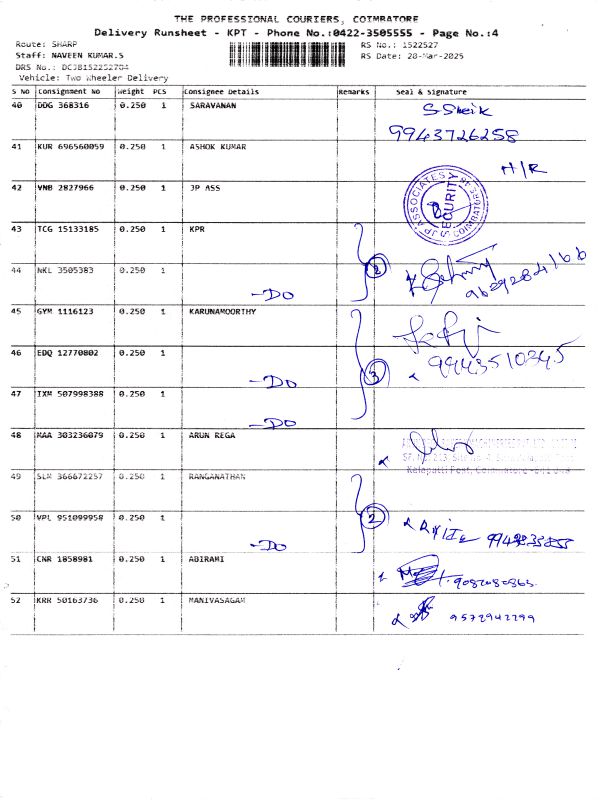 THE PROFESSIONAL COURIERS, COIMBATORE
Delivery Runsheet - KPT - Phone No.:0422-3505555 - Page No.:4
Route: SHARP
RS No.: 1522527
Staff: NAVEEN KUMAR.S
RS Date: 20-Mar-2025
DRS No.:
Vehicle: Two Wheeler Delivery
S No Consignment No Weight PCS Consignee Details Remarks Seal & Signature
40 DDG 368316 0.250 1 SARAVANAN
9943726258
41 KUR 696560059 0.250 1 ASHOK KUMAR
H/R
42 VNB 2827966 0.250 1 JP ASS
JP ASSOCIATES SECURITY COIMBATORE
43 TCG 15133185 0.250 1 KPR
2
44 NKL 3505383 0.250 1
-DO
45 GYM 1116123 0.250 1 KARUNAMOORTHY
46 EDQ 12770802 0.250 1
-DO
3
47 IXM 507998388 0.250 1
-DO
48 MAA 303236079 0.250 1 ARUN REGA
49 SLM 366672257 0.250 1 RANGANATHAN
50 VPL 951099958 0.250 1
2
-DO
51 CNR 1858981 0.250 1 ABIRAMI
52 KRR 50163736 0.250 1 MANIVASAGAM
9572942299